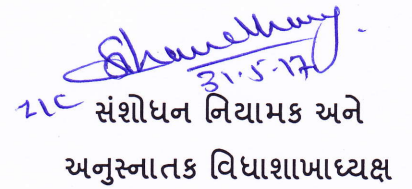 31.5.17
સંશોધન નિયામક અને
અનુસ્નાતક વિધાશાખાધ્યક્ષ